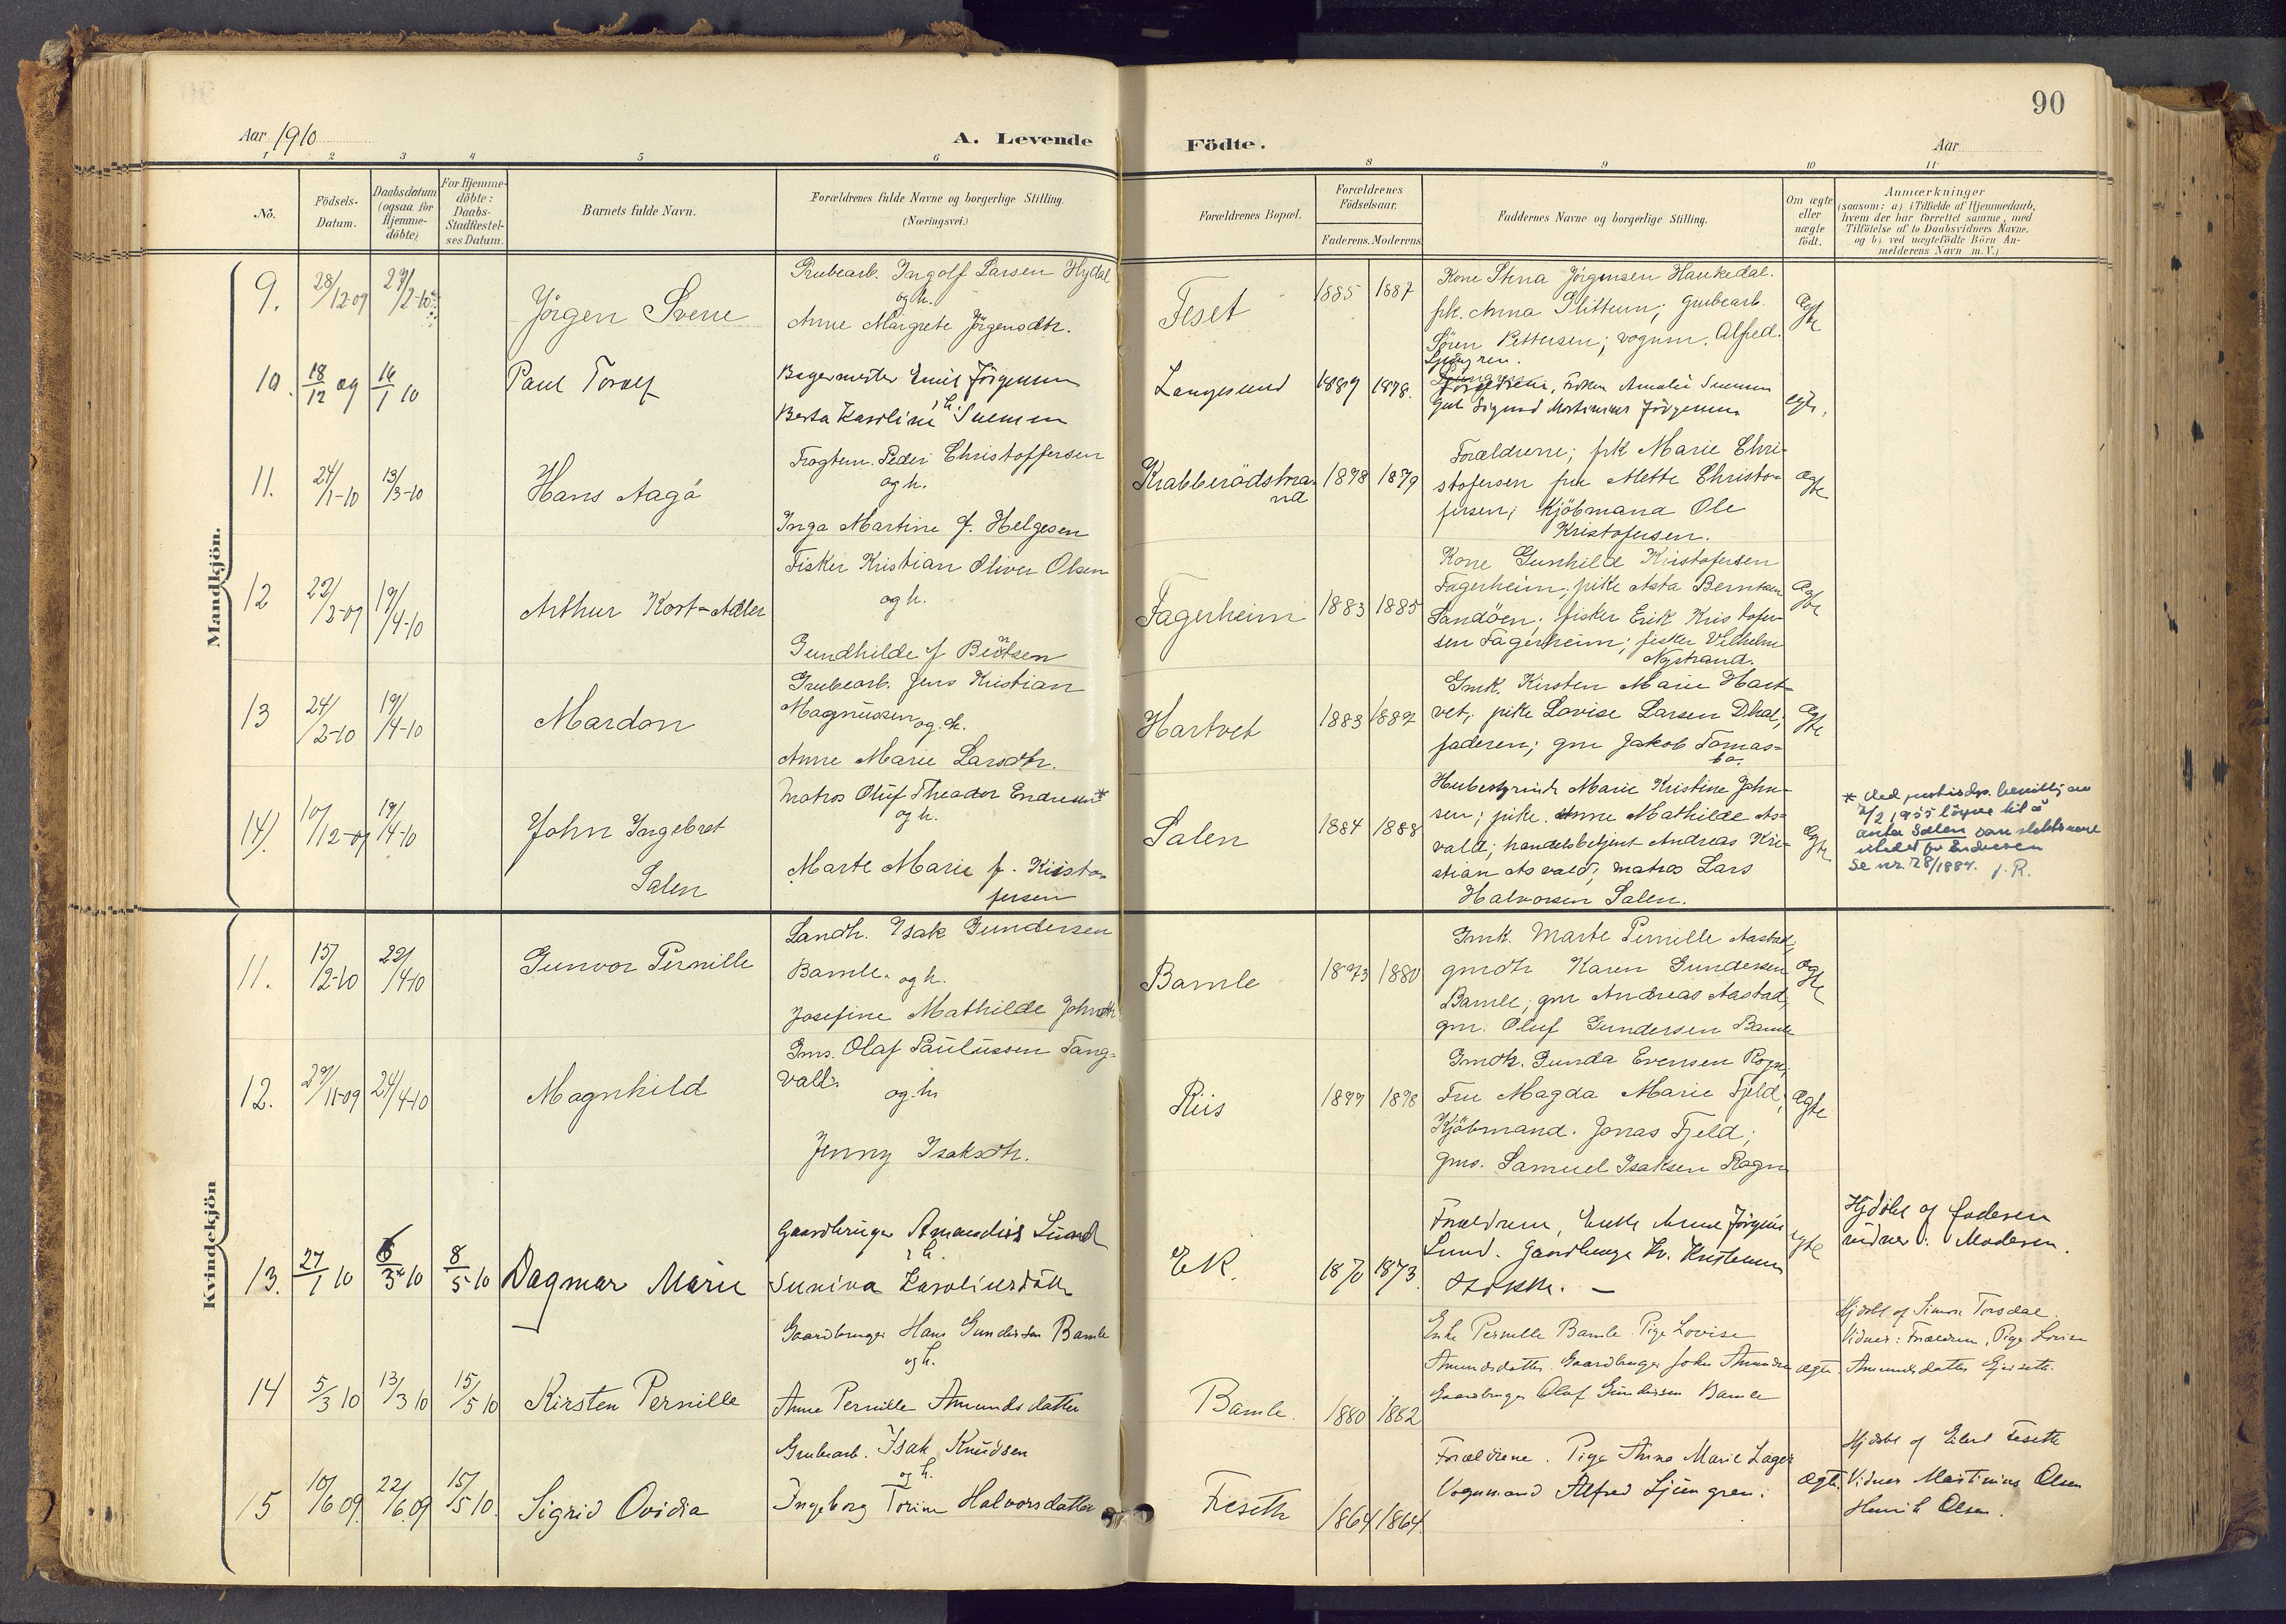 90
Aar 1910
A. Levende
Födte.
Aar
1 2 3 4 5 6 8 9 10 11
No.
Födsels-Datum.
Daabsdatum (ogsaa for Hjemme-döbte)
For Hjemme-döbte: Daabs-Stadfæstel-ses Datum.
Barnets fulde Navn.
Forældrenes fulde Navne og borgerlige Stilling.
(Næringsvei.)
Forældrenes Bopæl.
Forældrenes Födselsaar.
Faderens. Moderens
Faddernes Navne og borgerlige Stilling.
Om ægte eller uægte födt.
Anmærkninger
(saasom: a) i Tilfælde af Hjemmedaab,
hvem der har forrettet samme, med
Tilföielse af to Daabsvidners Navne.
og b) ved uægtefödte Börn An-
melderens Navn m.V.)
Mandkjön.
9. 28/12-09 27/2-10 Jörgen Svene
Grubearb. Ingolf Larsen Hydal
og h.
Anne Margrete Jörgensdtr.
Feset 1885 1887
Kone Stina Jörgensen Haukedal.
frk. Anna Slittum; Grubearb.
Sören Pettersen; vognm. Alfred
Ljungren.
Ægte
10. 18/12 09 16/1 10 Paul Toralf
Bagermester Emil Jörgensen
Berta Karoline
Langesund 1889 1878.
Forældrene, Fröken Amalie
Gut Sigurd Martinius Jörgensen
egte.
11. 24/1-10 13/3-10 Hans Aagå
Fragtem. Peder Christoffersen
og h.
Inga Martine f. Helgesen
Krabberödstrand 1878 1879
Forældrene; frk Marie Chri-
stofersen fru Mette Christo-
fersen; Kjöbmand Ole
Kristofersen.
Ægte
12 Arthur Kost-Adler
19/4-10
Fisker Kristian Oliver Olsen
og h.
Gundhilde f Berntsen
Fagerheim 1883 1885
Kone Gunhild Kristofersen
Fagerheim; pike Asta Berntsen
Sandöen; fisker Erik Kristofer-
sen Fagerheim; fisker Vilhelm
Nystrand.
Ægte
13 24/2-10 19/4-10 Mardon
Grubearb. Jens Kristian
Magnussen og h.
Anne Marie Larsdtr.
Hartvet 1883 1887
Gmk. Kirsten Marie Hart-
vet; pike Lovise Larsen Dhal;
faderen; gm Jakob Tomas-
bo.
Ægte
14). 10/12-09 19/4-10 John Ingebret
Salen
Matros Oluf Theador Endresen*
og h.
Marte Marie f. Kristo-
fersen
Salen 1884 1888
Husbestyrinde Marie Kristine John-
sen; pike. Anne Mathilde As-
vald; handelsbetjent Andreas Kri-
stian Asvald; matros Lars
Halvorsen Salen.
Ægte
* Ved justisdep. bevillj av
2/2 1955 til å
anta Salen som slektsnavn
istedet for Endresen
Se nr. 28/1884. J.R.
Kvindekjön
11. 15/2-10 22/4-10 Gunvor Pernille
Landh. Isak Gundersen
Bamle. og h.
Josefine Mathilde Johnsdtr
Bamle 1873 1880
Gmk. Marte Pernille Aastad;
gmdtr Karen Gundersen
Bamle; gm Andreas Aastad;
gm. Oluf Gundersen Bamle
Ægte
12. 29/11-09 24/4-10 Magnhild
Gms. Olaf Paulussen Tang-
vall. og h.
Jenny Isaksdtr.
Riis 1877 1878
Gmdtr. Gunda Evensen Rogn;
Fru Magda Marie Fjeld;
Kjöbmand. Jonas Fjeld;
Gms. Samuel Isaksen Rogn
Ægte
13. 27/1 10 10 8/5 10 Dagmar Marie
Gaardbruger Amandus Lund
Suniva Karoliusdatter
Ek. 1870 1873.
Forældrene, Enke Anne Jörgine
Lund. Gaardbruger Kr. Kristensen
Stokke. —
egte
Hjdöbt af faderen
vidner: Moderen.
14 5/3 10 13/3 10 15/5 10 Kirsten Pernille
Gaardbruger Hans Gundersen Bamle
og h.
Anne Pernille Amundsdatter
Bamle. 1880 1882
Enke Pernille Bamle. Pige Lovise
Amundsdatter. Gaardbruger John
Gaardbruger Olaf Gundersen Bamle
ægte
Hjdöbt af Simon Torsdal.
Vidner: Forældrene, Pige Lovise
Amundsdatter
15 10/6 09. 22/6.09 15/5 10. Sigrid Ovidia
Grubearb. Isak Knudsen
og h.
Ingeborg Torine Halvorsdatter
Feseth 1864 1864
Forældrene. Pige Anna Marie Lager
Vognmand Alfred Ljungren.
ægte.
Hjdöbt af Eilert Feseth
Vidner Martinius Olsen
Henrik Olsen.